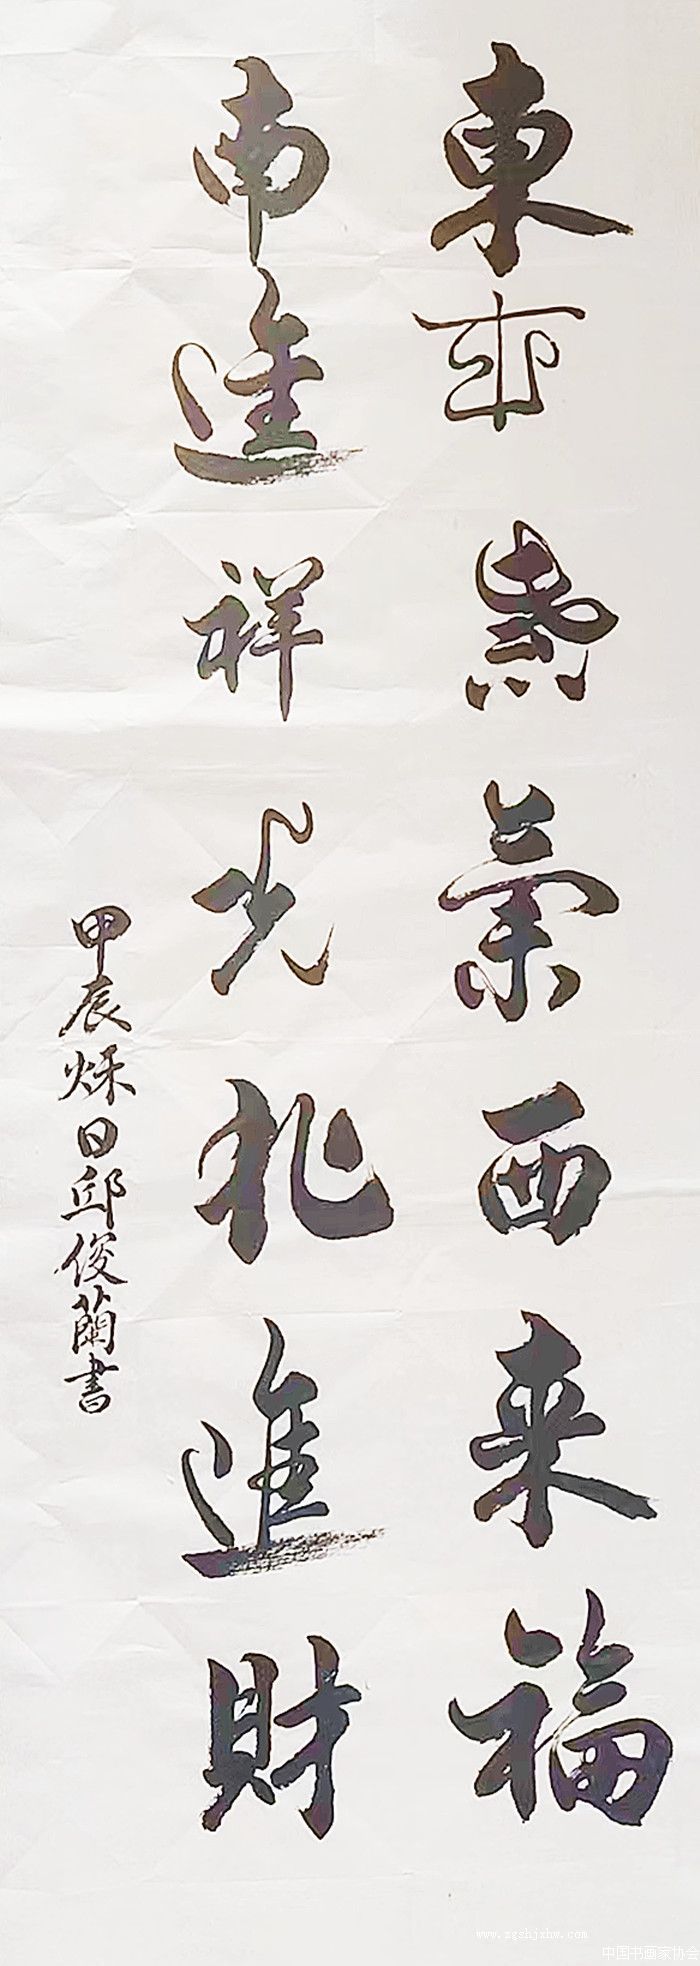 東來紫氣西来福
南進祥光北進財
甲辰秌日邱俊蘭書
www.zgshjxhw.com
中国书画家协会